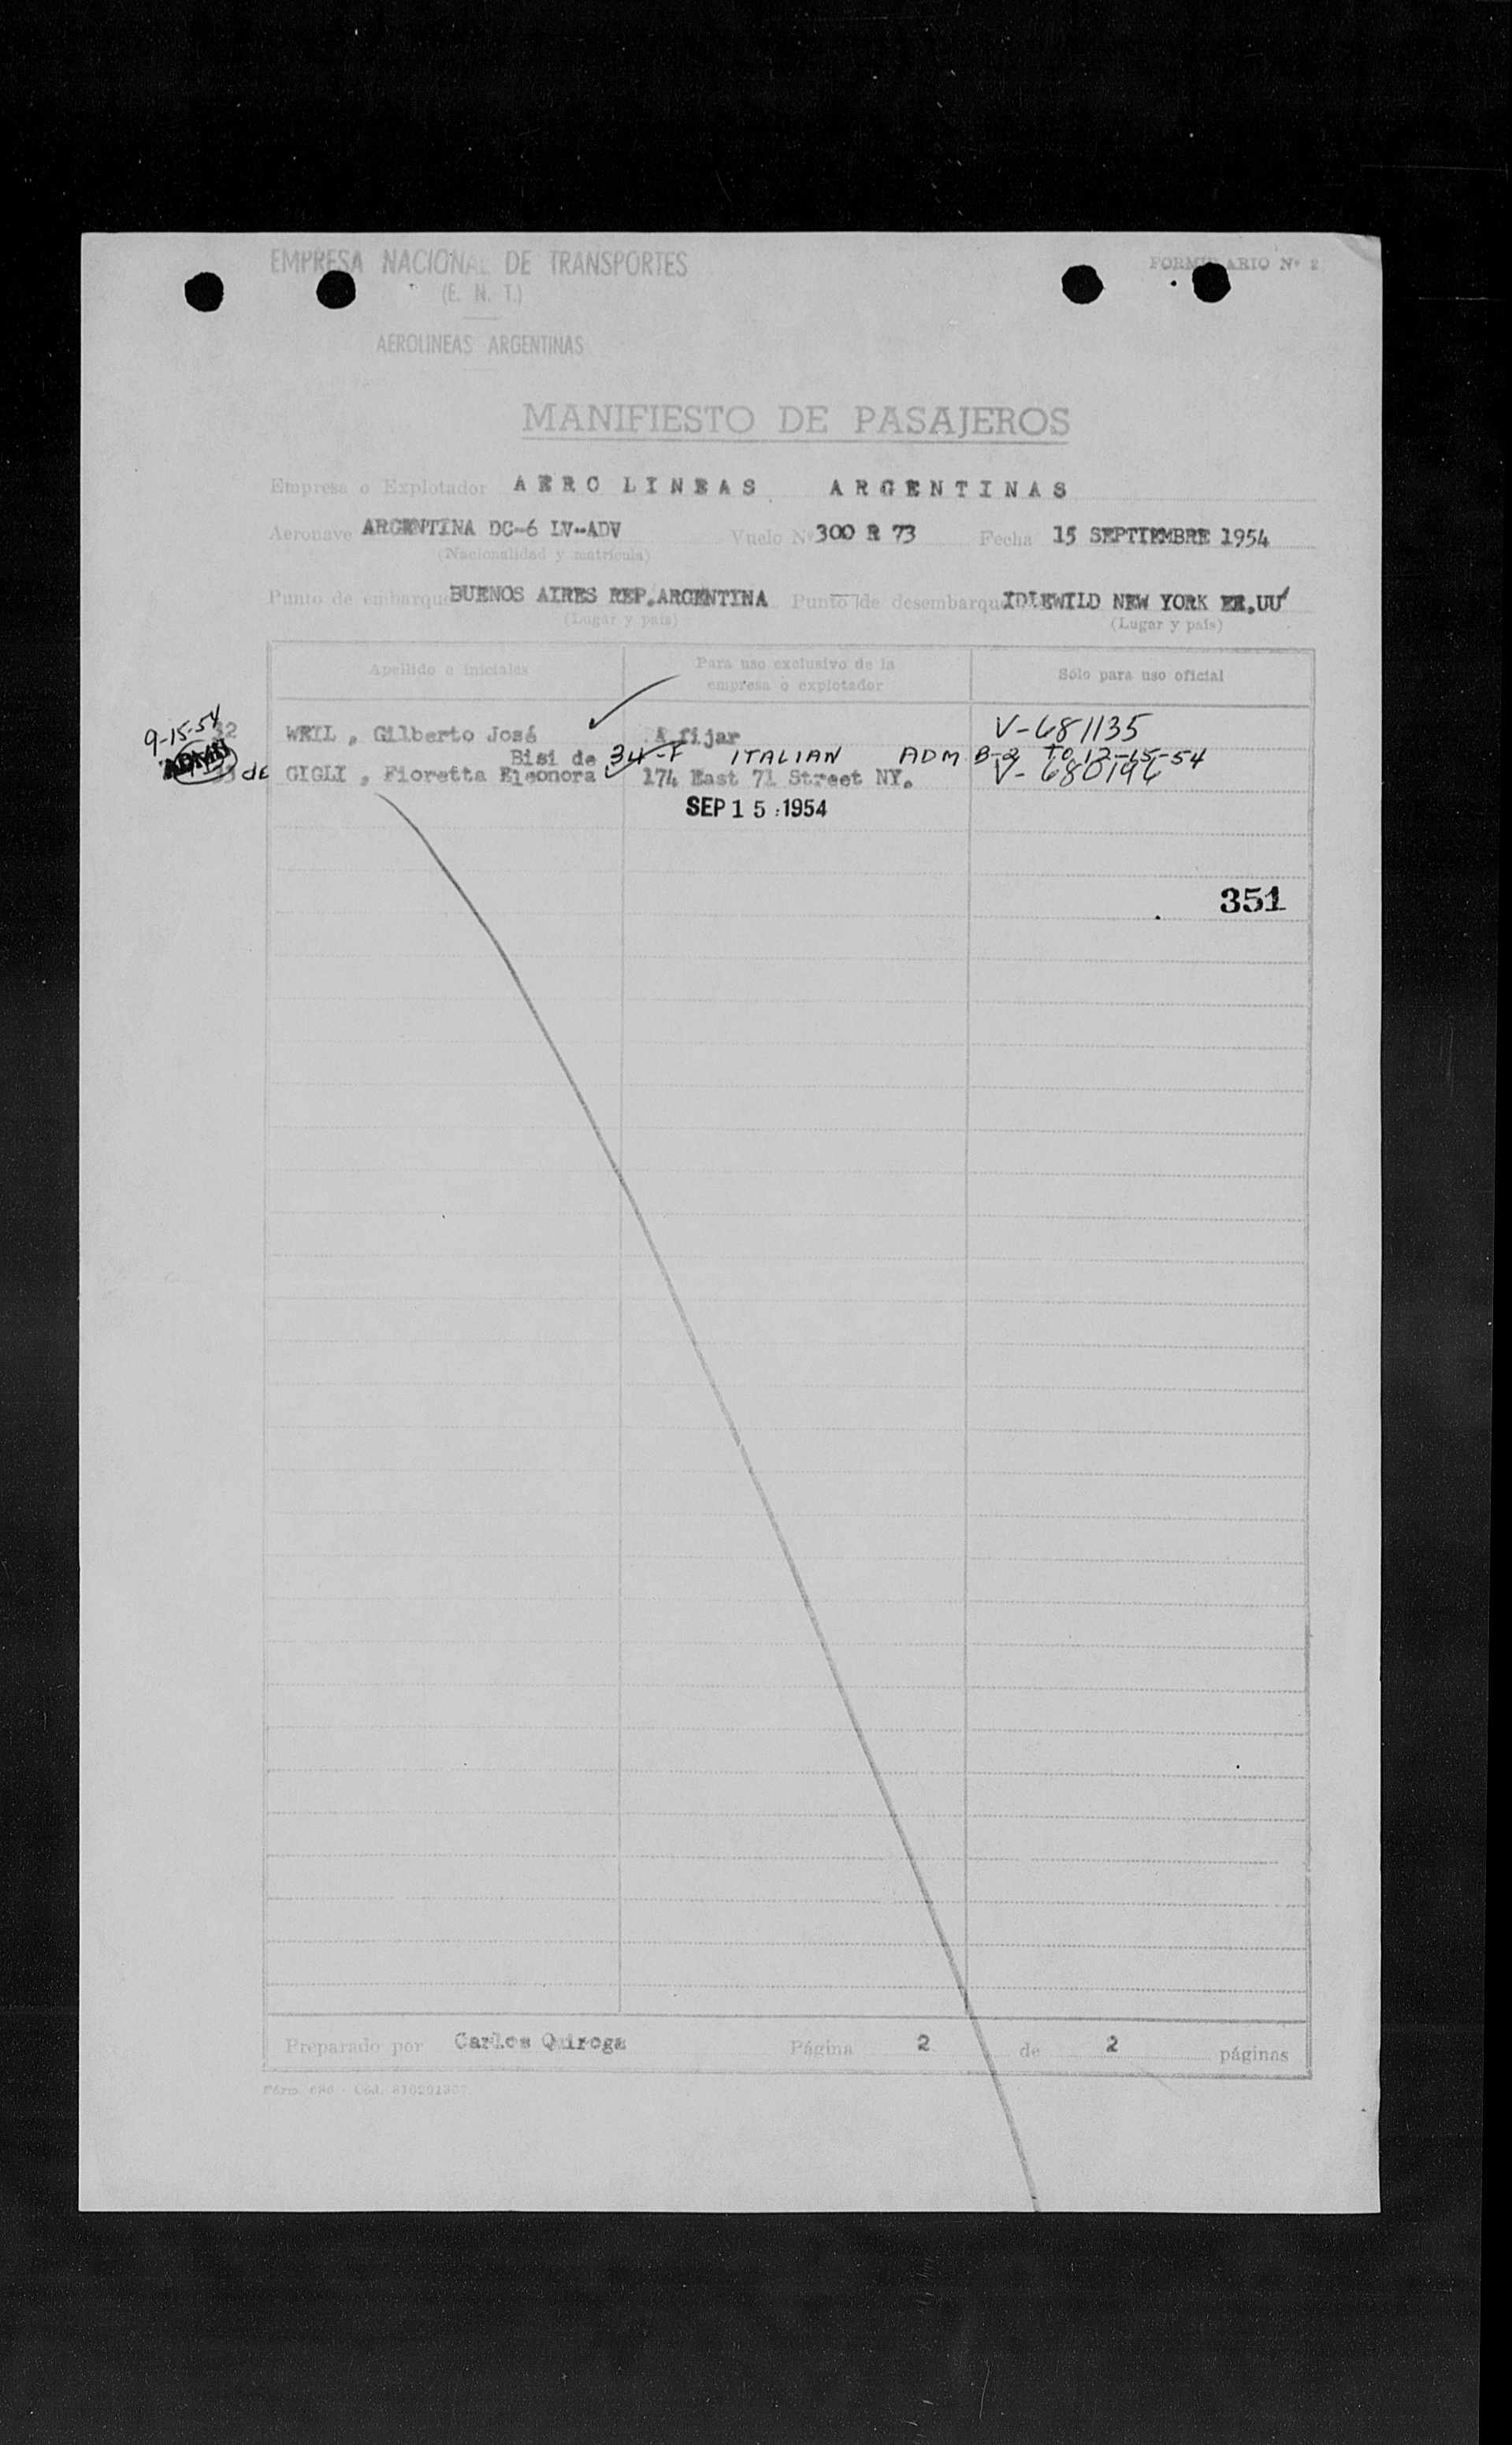 EMPRESA NACIONAL DE TRANSPORTES
(E. N. T.)
AEROLINEAS ARGENTINAS
FORMULARIO Nº 2
MANIFIESTO DE PASAJEROS
Empresa o Explotador AERO LINEAS ARGENTINAS
Aeronave ARGENTINA DC-6 LV-ADV Vuelo Nº 300 R 73 Fecha 15 SEPTIEMBRE 1954
(Nacionalidad y matrícula)
Punto de embarque BUENOS AIRES REP.ARGENTINA Punto de desembarque IDLEWILD NEW YORK EE.UU
(Lugar y país) (Lugar y país)
Apellido e iniciales Para uso exclusivo de la empresa o explotador Sólo para uso oficial
9-15-54
32 WEIL , Gilberto José A fijar V-681135
Bisi de 34-F ITALIAN ADM B-2 TO 12-15-54
33 de GIGLI , Fioretta Eleonora 174 East 71 Street NY. V-680196
SEP 15 1954
351
Preparado por Carlos Quiroga Página 2 de 2 páginas